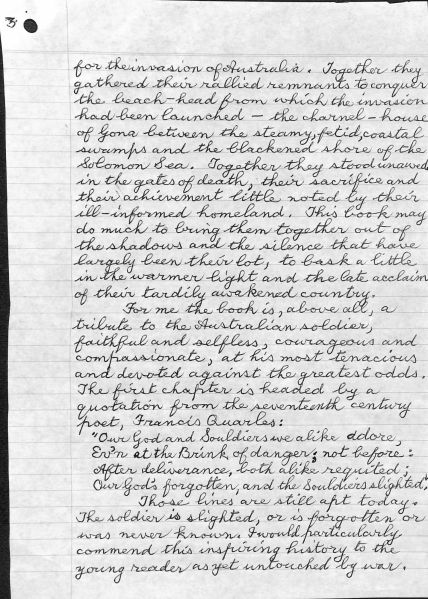 3
for the invasion of Australia. Together they
gathered their rallied remnants to conquer
the beach-head from which the invasion
had been launched — the charnel-house
of Gona between the steamy, fetid, coastal
swamps and the blackened shore of the
Solomon Sea. Together they stood unawed
in the gates of death, their sacrifice and
their achievement little noted by their
ill-informed homeland. This book may
do much to bring them together out of
the shadows and the silence that have
largely been their lot, to bask a little
in the warmer light and the late acclaim
of their tardily awakened country.
For me the book is, above all, a
tribute to the Australian soldier,
faithful and selfless, courageous and
compassionate, at his most tenacious
and devoted against the greatest odds.
The first chapter is headed by a
quotation from the seventeenth century
poet, Francis Quarles:
"Our God and Souldiers we alike adore,
Ev'n at the Brink of danger; not before:
After deliverance, both alike requited;
Our God's forgotten, and the Souldiers slighted."
Those lines are still apt today.
The soldier is slighted, or is forgotten or
was never known. I would particularly
commend this inspiring history to the
young reader as yet untouched by war.